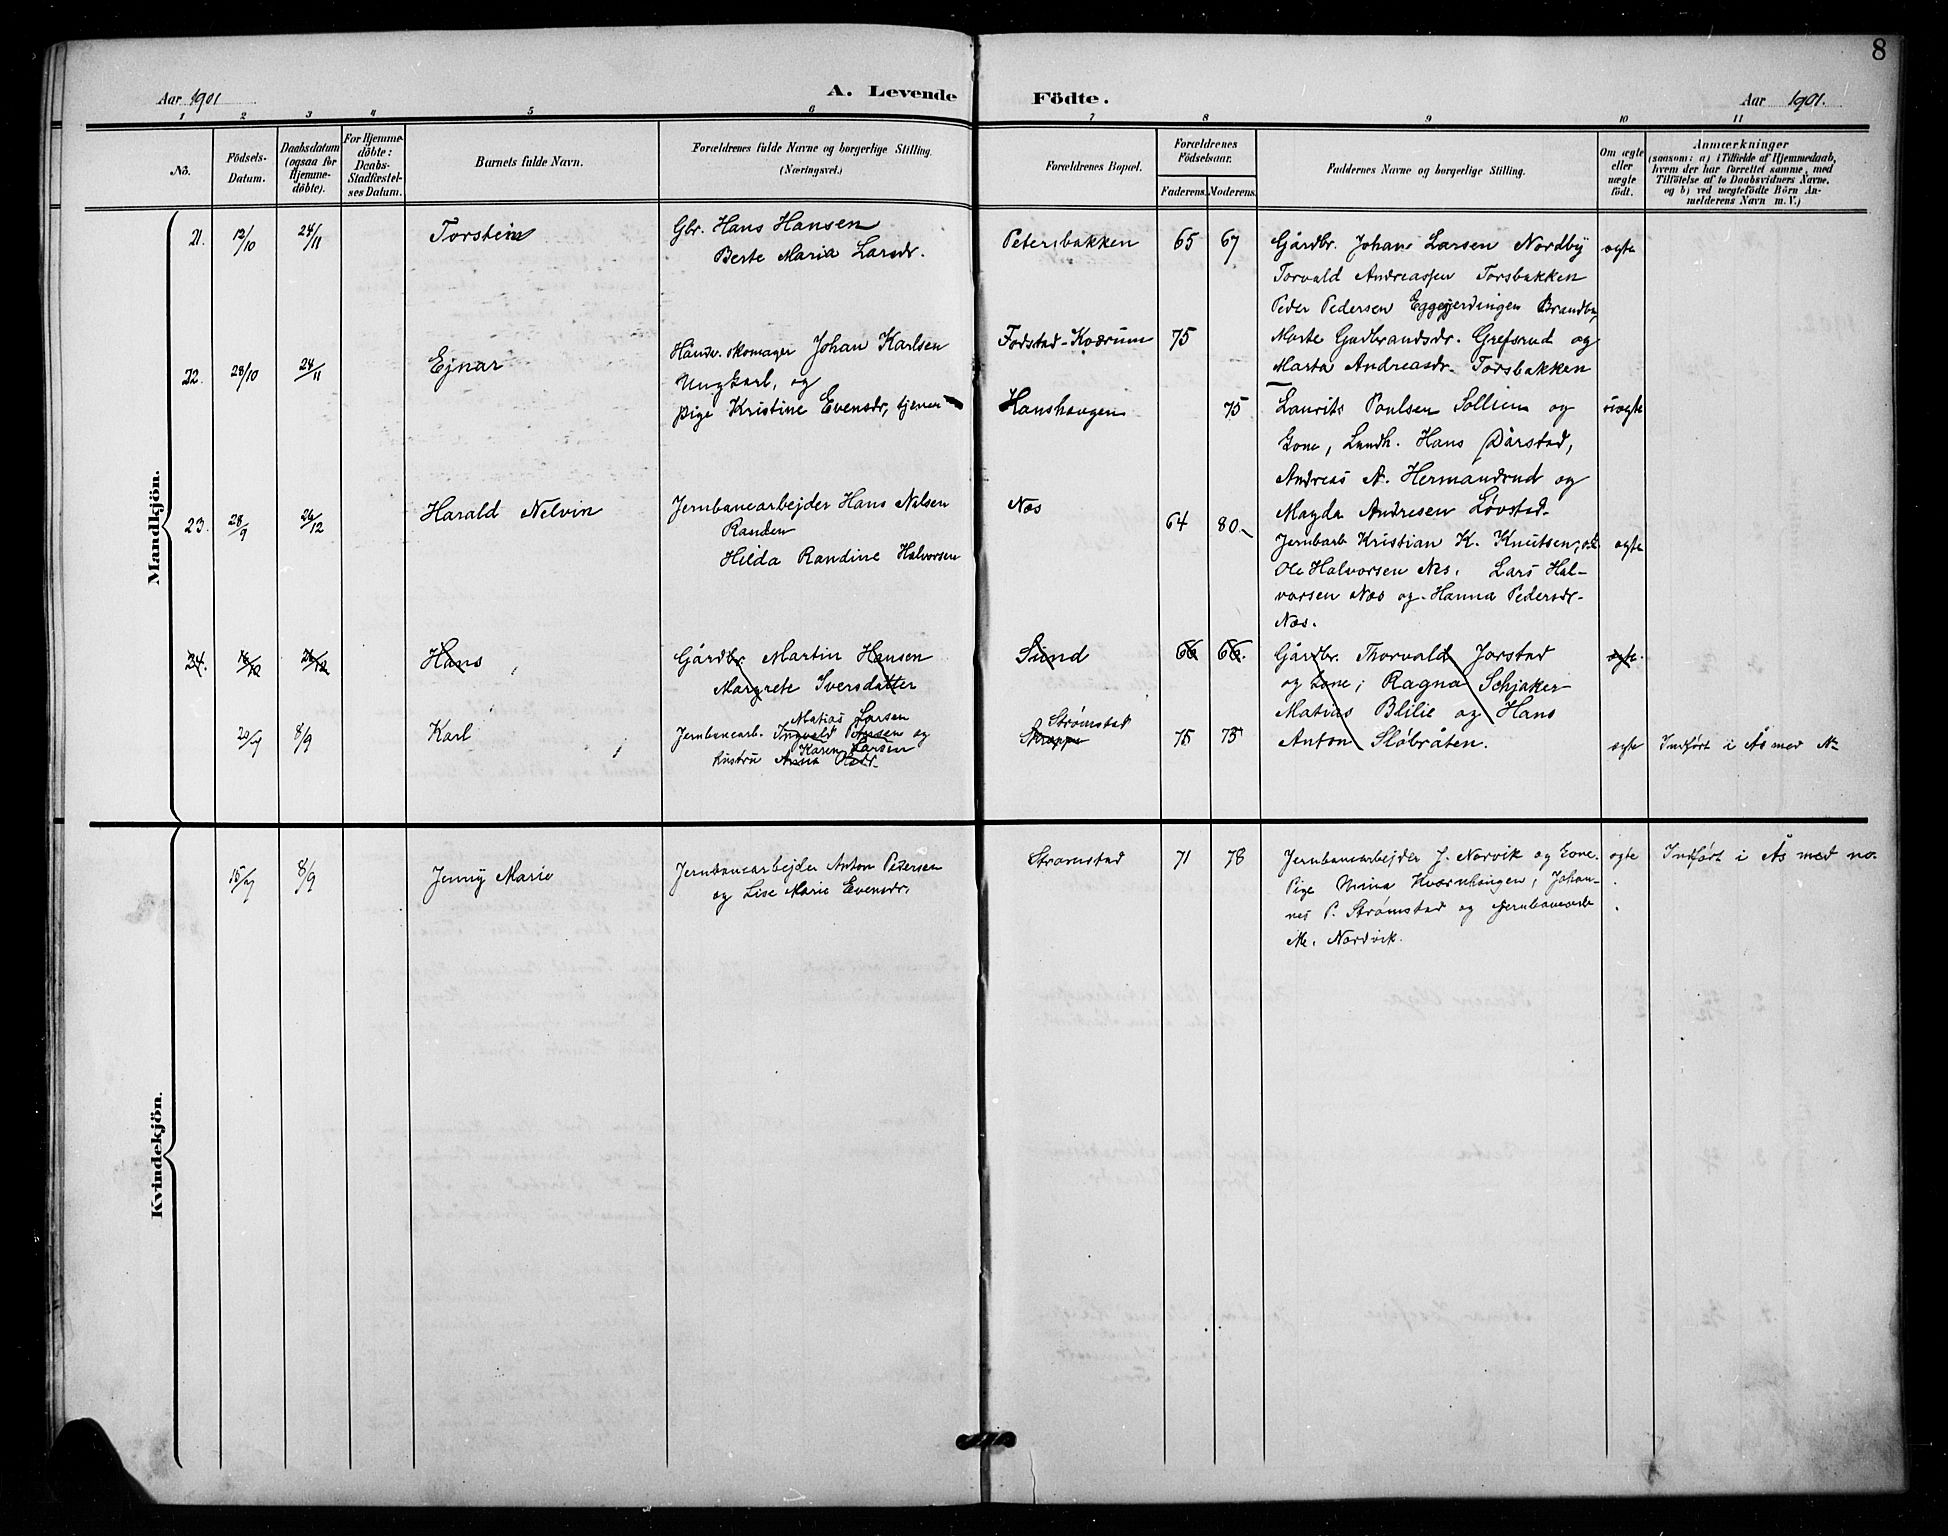 8
Aar 1901
A. Levende Födte.
Aar 1901.
1 2 3 4 5 6 7 8 9 10 11
No.
Födsels-
Datum.
Daabsdatum
(ogsaa for
Hjemme-
döbte).
For Hjemme-
döbte:
Daabs-
Stadfæstel-
ses Datum.
Barnets fulde Navn.
Forældrenes fulde Navne og borgerlige Stilling.
(Næringsvei.)
Forældrenes Bopæl.
Forældrenes
Födselsaar.
Faderens. Moderens.
Faddernes Navne og borgerlige Stilling.
Om ægte
eller
uægte
födt.
Anmærkninger
(saasom: a) i Tilfælde af Hjemmedaab,
hvem der har forrettet samme, med
Tilföielse af to Daabsvidners Navne,
og b) ved uægtefödte Börn An-
melderens Navn m. V.)
Mandkjön.
21. 12/10 24/11 Torstein
Gbr. Hans Hansen
Berte Maria Larsdr.
Petersbakken 65 67
Gårdbr. Johan Larsen Nordby
Torvald Andreassen Torsbakken
Peder Pedersen Eggegjerdingen
Marte Gudbrandsdr. Grefsrud og
Marta Andreasdr. Torsbakken
ægte
22. 28/10 24/11 Ejnar
Handv. skomager Johan Karlsen
Ungkarl, og
pige Kristine Evensdr, tjener
Fodstad-Kværum 75
Hanshaugen 75
Laurits Paulsen Sollien og
Kone, Landh. Hans Dårstad,
Andreas A. Hermandrud og
Magda Andresen Løvstad.
uægte
23. 28/9 26/12 Harald Nelvin
Jernbanearbejder Hans Nilsen
Randen
Hilda Randine Halvorsen
Næs 64 80
Jernbarb Kristian K. Knutsen,
Ole Halvorsen Nes. Lars Hal-
vorsen Næs og Hanna Pedersdr.
Næs.
ægte
24. 26/12 Hans
Gårdbr. Martin Hansen
Margrete Iversdatter
Sund 66 66.
Gårdbr. Thorvald Jorstad
og Kone; Ragna Schjaker
Matias Blilie og Hans
Anton Slöbråten.
ægte.
20/7 8/9 Karl
Matias Larsen
Jernbanearb. Ingvald og
Karen Larsen
hustru Anna
Strømstad
75 75
ægte Indført i Ås med No
Kvindekjön.
15/7 8/9 Jenny Marie
Jernbanearbejder Anton Petersen
og Lise Marie Evensdr.
Strømstad 71 78
Jernbanearbejder J. Norvik og Kone.
Pige Mina Kværnhaugen, Johan-
nes P. Strømstad og Jernbanearb
M. Nordvik.
ægte Indført i Ås med no.